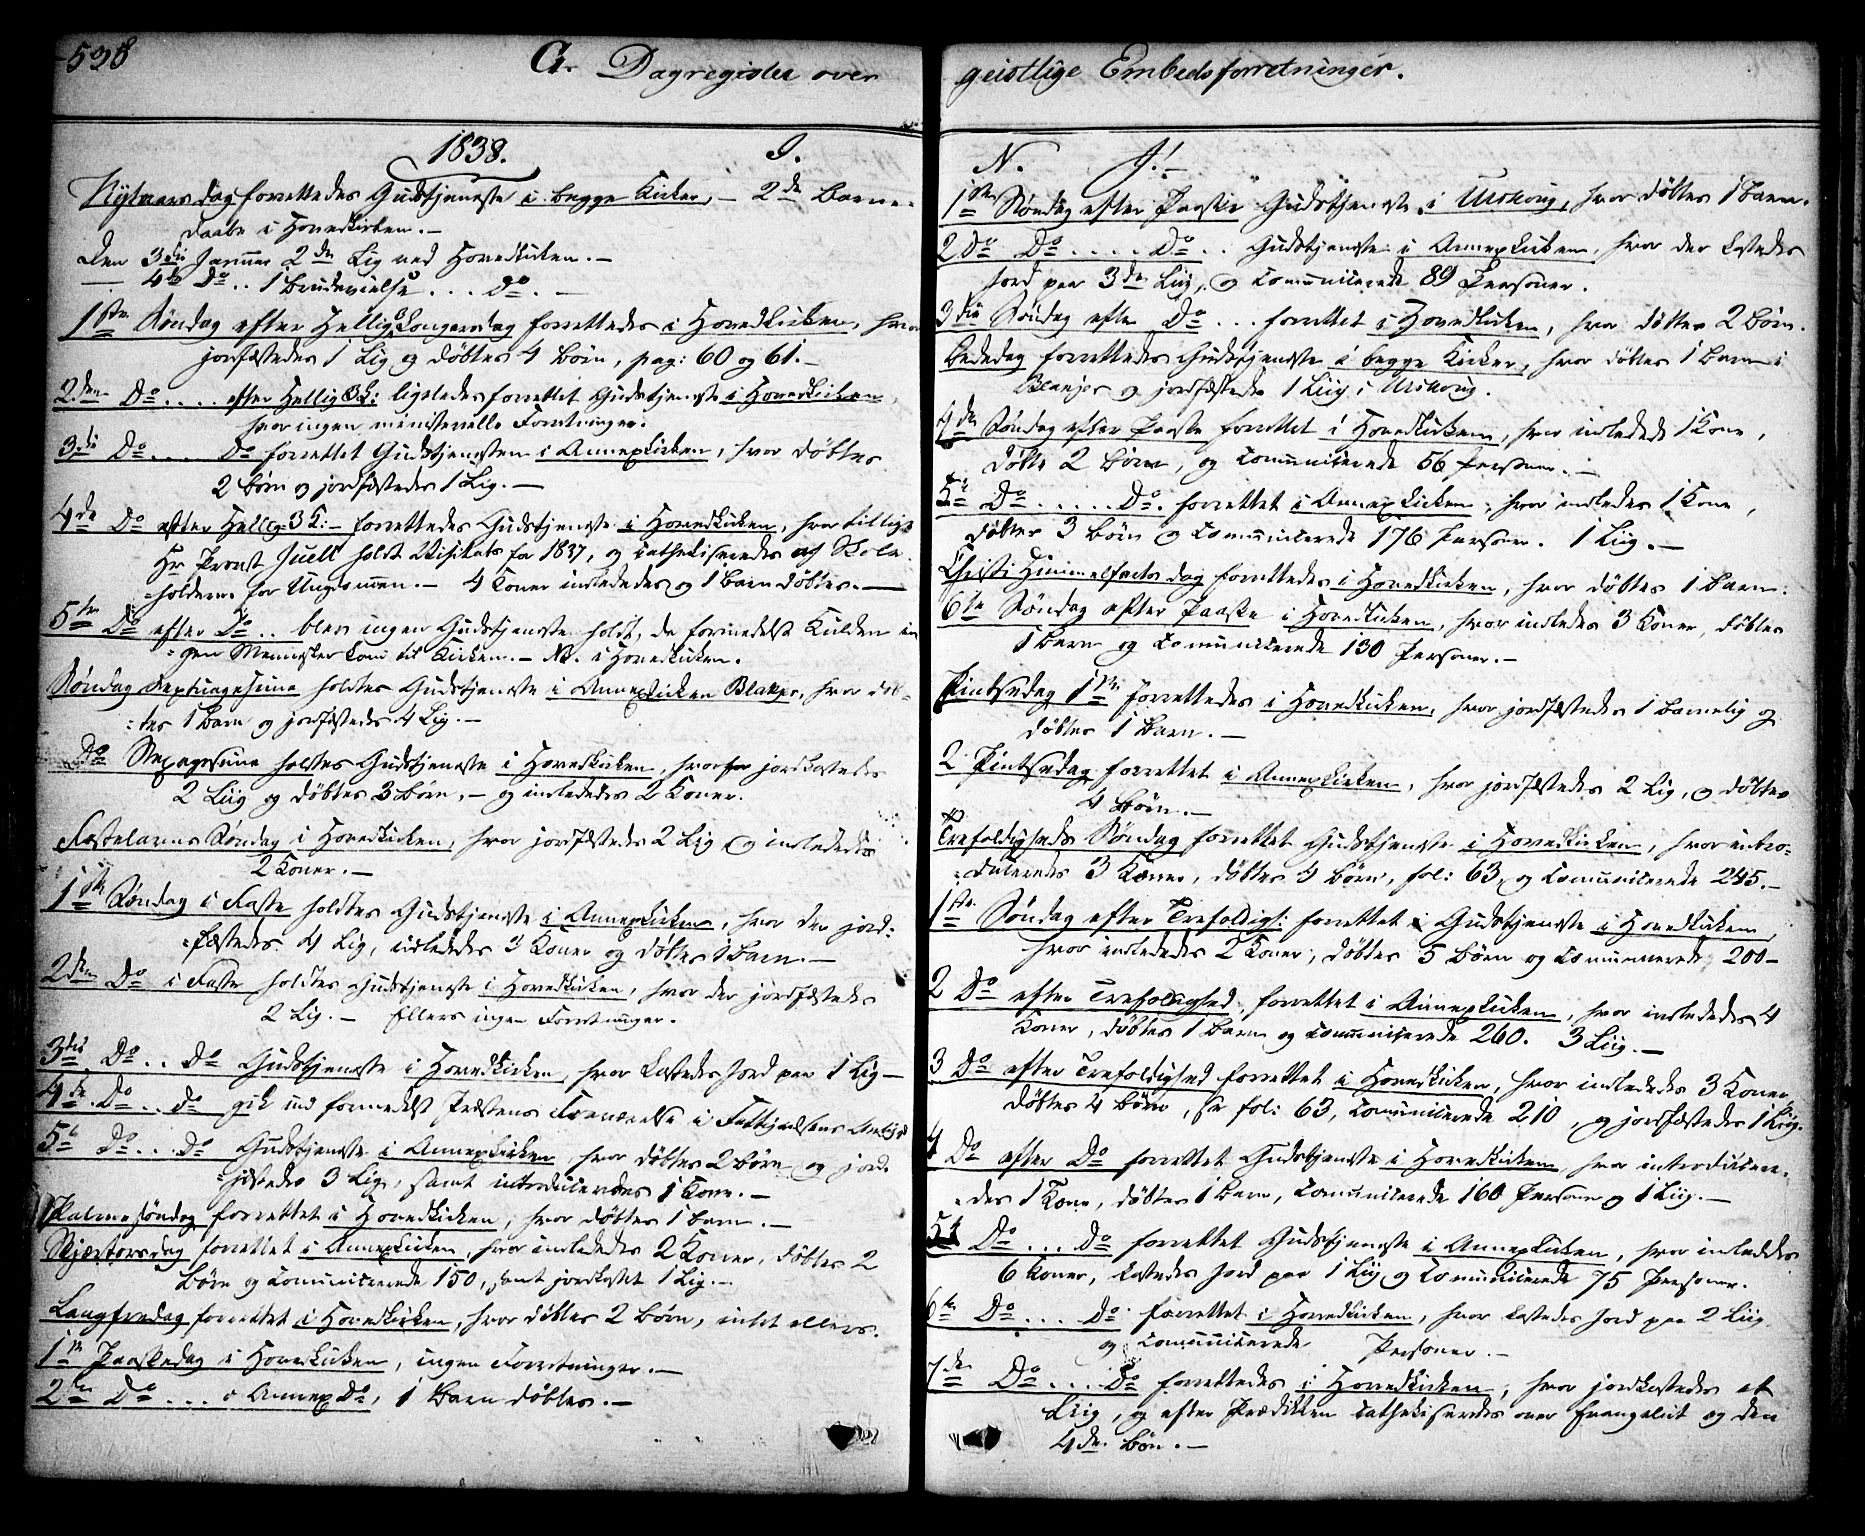 538
G. Dagregister over
1838. I.
Nytaarsdag forrettedes Gudstjeneste i begge Kirker, — 2de Barne-
daabe i Hovedkirken. —
Den 3die Januar 2de Lig ved Hovedkirken. —
— 4de Do .. 1 Brudevielse ... Do. —
1ste Søndag efter Hellig3Kongersdag forrettedes i Hovedkirken, hvor
jordfæstedes 1 Lig og døbtes 4 Børn, pag: 60 og 61. —
2den Do .... efter Hellig 3K: ligeledes forrettet Gudstjeneste i Hovedkirken,
hvor ingen ministerielle Forretninger.
3die Do .... Do forrettet Gudstjenesten i Annexkirken, hvor døbtes
2 Børn og jordfæstedes 1 Lig. —
4de Do efter Hellig 3K: — forrettedes Gudstjeneste i Hovedkirken, hvor tillige
Hr Provst Juell holdt Visitats for 1837, og cathekiseredes af Skole-
holderne for Ungdommen. — 4 Koner indlededes og 1 Barn døbtes. —
5te Do efter Do .. blev ingen Gudstjeneste holdt, da formedelst Kulden in-
gen Mennesker kom til Kirken. — Nb. i Hovedkirken.
Søndag Septuagesima holdtes Gudstjeneste i Annexkirken Blakjer, hvor døb-
tes 1 Barn og jordfæstedes 4 Lig. —
Do Sexagesima holdtes Gudstjeneste i Hovedkirken, hvor jordkastedes
2 Liig og døbtes 3 Børn, — og indlededes 2 Koner.
Fastelavns Søndag i Hovedkirken, hvor jordfæstedes 2 Lig og indlededes
2 Koner. —
1ste Søndag i Faste holdtes Gudstjeneste i Annexkirken, hvor der jord-
fæstedes 4 Lig, indlededes 3 Koner og døbtes 1 Barn. —
2den Do i Faste holdtes Gudstjeneste i Hovedkirken, hvor der jordfæstedes
2 Lig. — Ellers ingen Forretninger.
3die Do .. Do Gudstjeneste i Hovedkirken, hvor kastedes Jord paa 1 Lig —
4de Do .. Do gik ind formedelst Præstens Fraværelse i
5te Do ... Do Gudstjeneste i Annexkirken, hvor døbtes 2 Børn og jord-
fæstedes 3 Lig, samt introduceredes 1 Kone. —
Palmesøndag forrettet i Hovedkirken, hvor døbtes 1 Barn. —
Skjærtorsdag forrettet i Annexkirken, hvor indlededes 2 Koner, døbtes 2
Børn og Communicerede 150, samt jordkastet 1 Lig. —
Langfredag forrettet i Hovedkirken, hvor døbtes 2 Børn, intet ellers.
1ste Paaskedag i Hovedkirken, ingen Forretninger. —
2den Do ... i Annex Do, 1 Barn døbtes. —
geistlige Embedsforretninger.
N. J. —
1ste Søndag efter Paaske Gudstjeneste i Urskoug, hvor døbtes 1 Barn.
2 Do Do .... Do .. Gudstjeneste i Annexkirken, hvor der kastedes
Jord paa 3de Liig, og Communicerede 89 Personer.
3die Søndag efter Do ... forrettet i Hovedkirken, hvor døbtes 2 Børn.
Bededag forrettedes Gudstjeneste i begge Kirker, hvor døbtes 1 Barn i
Blakjer og jordfæstedes 1 Liig i Urskoug.
4de Søndag efter Paaske forrettet i Hovedkirken, hvor indledede 1 Kone,
døbte 2 Børn, og Communicerede 56 Personer. —
5te Do ..... Do. forrettet i Annexkirken, hvor indledes 1 Kone,
døbtes 3 Børn og Communicerede 176 Personer. 1 Liig. —
Christi Himmelfartsdag forrettedes i Hovedkirken, hvor døbtes 1 Barn:
6te Søndag efter Paaske i Hovedkirken, hvor indledes 3 Koner, døbtes
1 Barn og Communicerede 130 Personer. —
Pintsedag 1ste forrettedes i Hovedkirken, hvor jordfæstedes 1 Barnelig og
døbtes 1 Barn. —
2. Pintsedag forrettet i Annexkirken, hvor jordfæstedes 2 Lig, og døbtes
4 Børn. —
Trefoldigheds Søndag forrettet Gudstjeneste i Hovedkirken, hvor intro-
duceredes 3 Koner, døbtes 4 Børn, fol: 63, og Communicerede 245. —
1ste Søndag efter Trefoldigh: forrettet Gudstjeneste i Hovedkirken,
hvor indlededes 2 Koner, døbtes 5 Børn og Communicerede 200 —
2 Do efter Trefoldighed, forrettet i Annexkirken, hvor indlededes 4
Koner, døbtes 1 Barn og Communicerede 260. 3 Liig. —
3 Do efter Trefoldighed forrettet i Hovedkirken, hvor indlededes 3 Koner,
døbtes 4 Børn, se fol: 63, Communicerede 210, og jordfæstedes 1 Liig.
4 Do efter Do forrettet Gudstjeneste i Hovedkirken, hvor introducere-
des 1 Kone, døbtes 1 Barn, Communicerede 160 Personer og 1 Liig. —
5te Do ... Do forrettet Gudstjeneste i Annexkirken, hvor indledes
6 Koner, kastedes Jord paa 1 Liig og Communicerede 75 Personer.
6te Do ... Do. forrettet i Hovedkirken, hvor kastedes Jord paa 2 Liig
og Communicerede Personer. —
7de Do ... Do forrettedes i Hovedkirken, hvor jordkastedes et
Liig, og efter Prædiken cathekiseredes over Evangeliet og den
4de Bøn. —